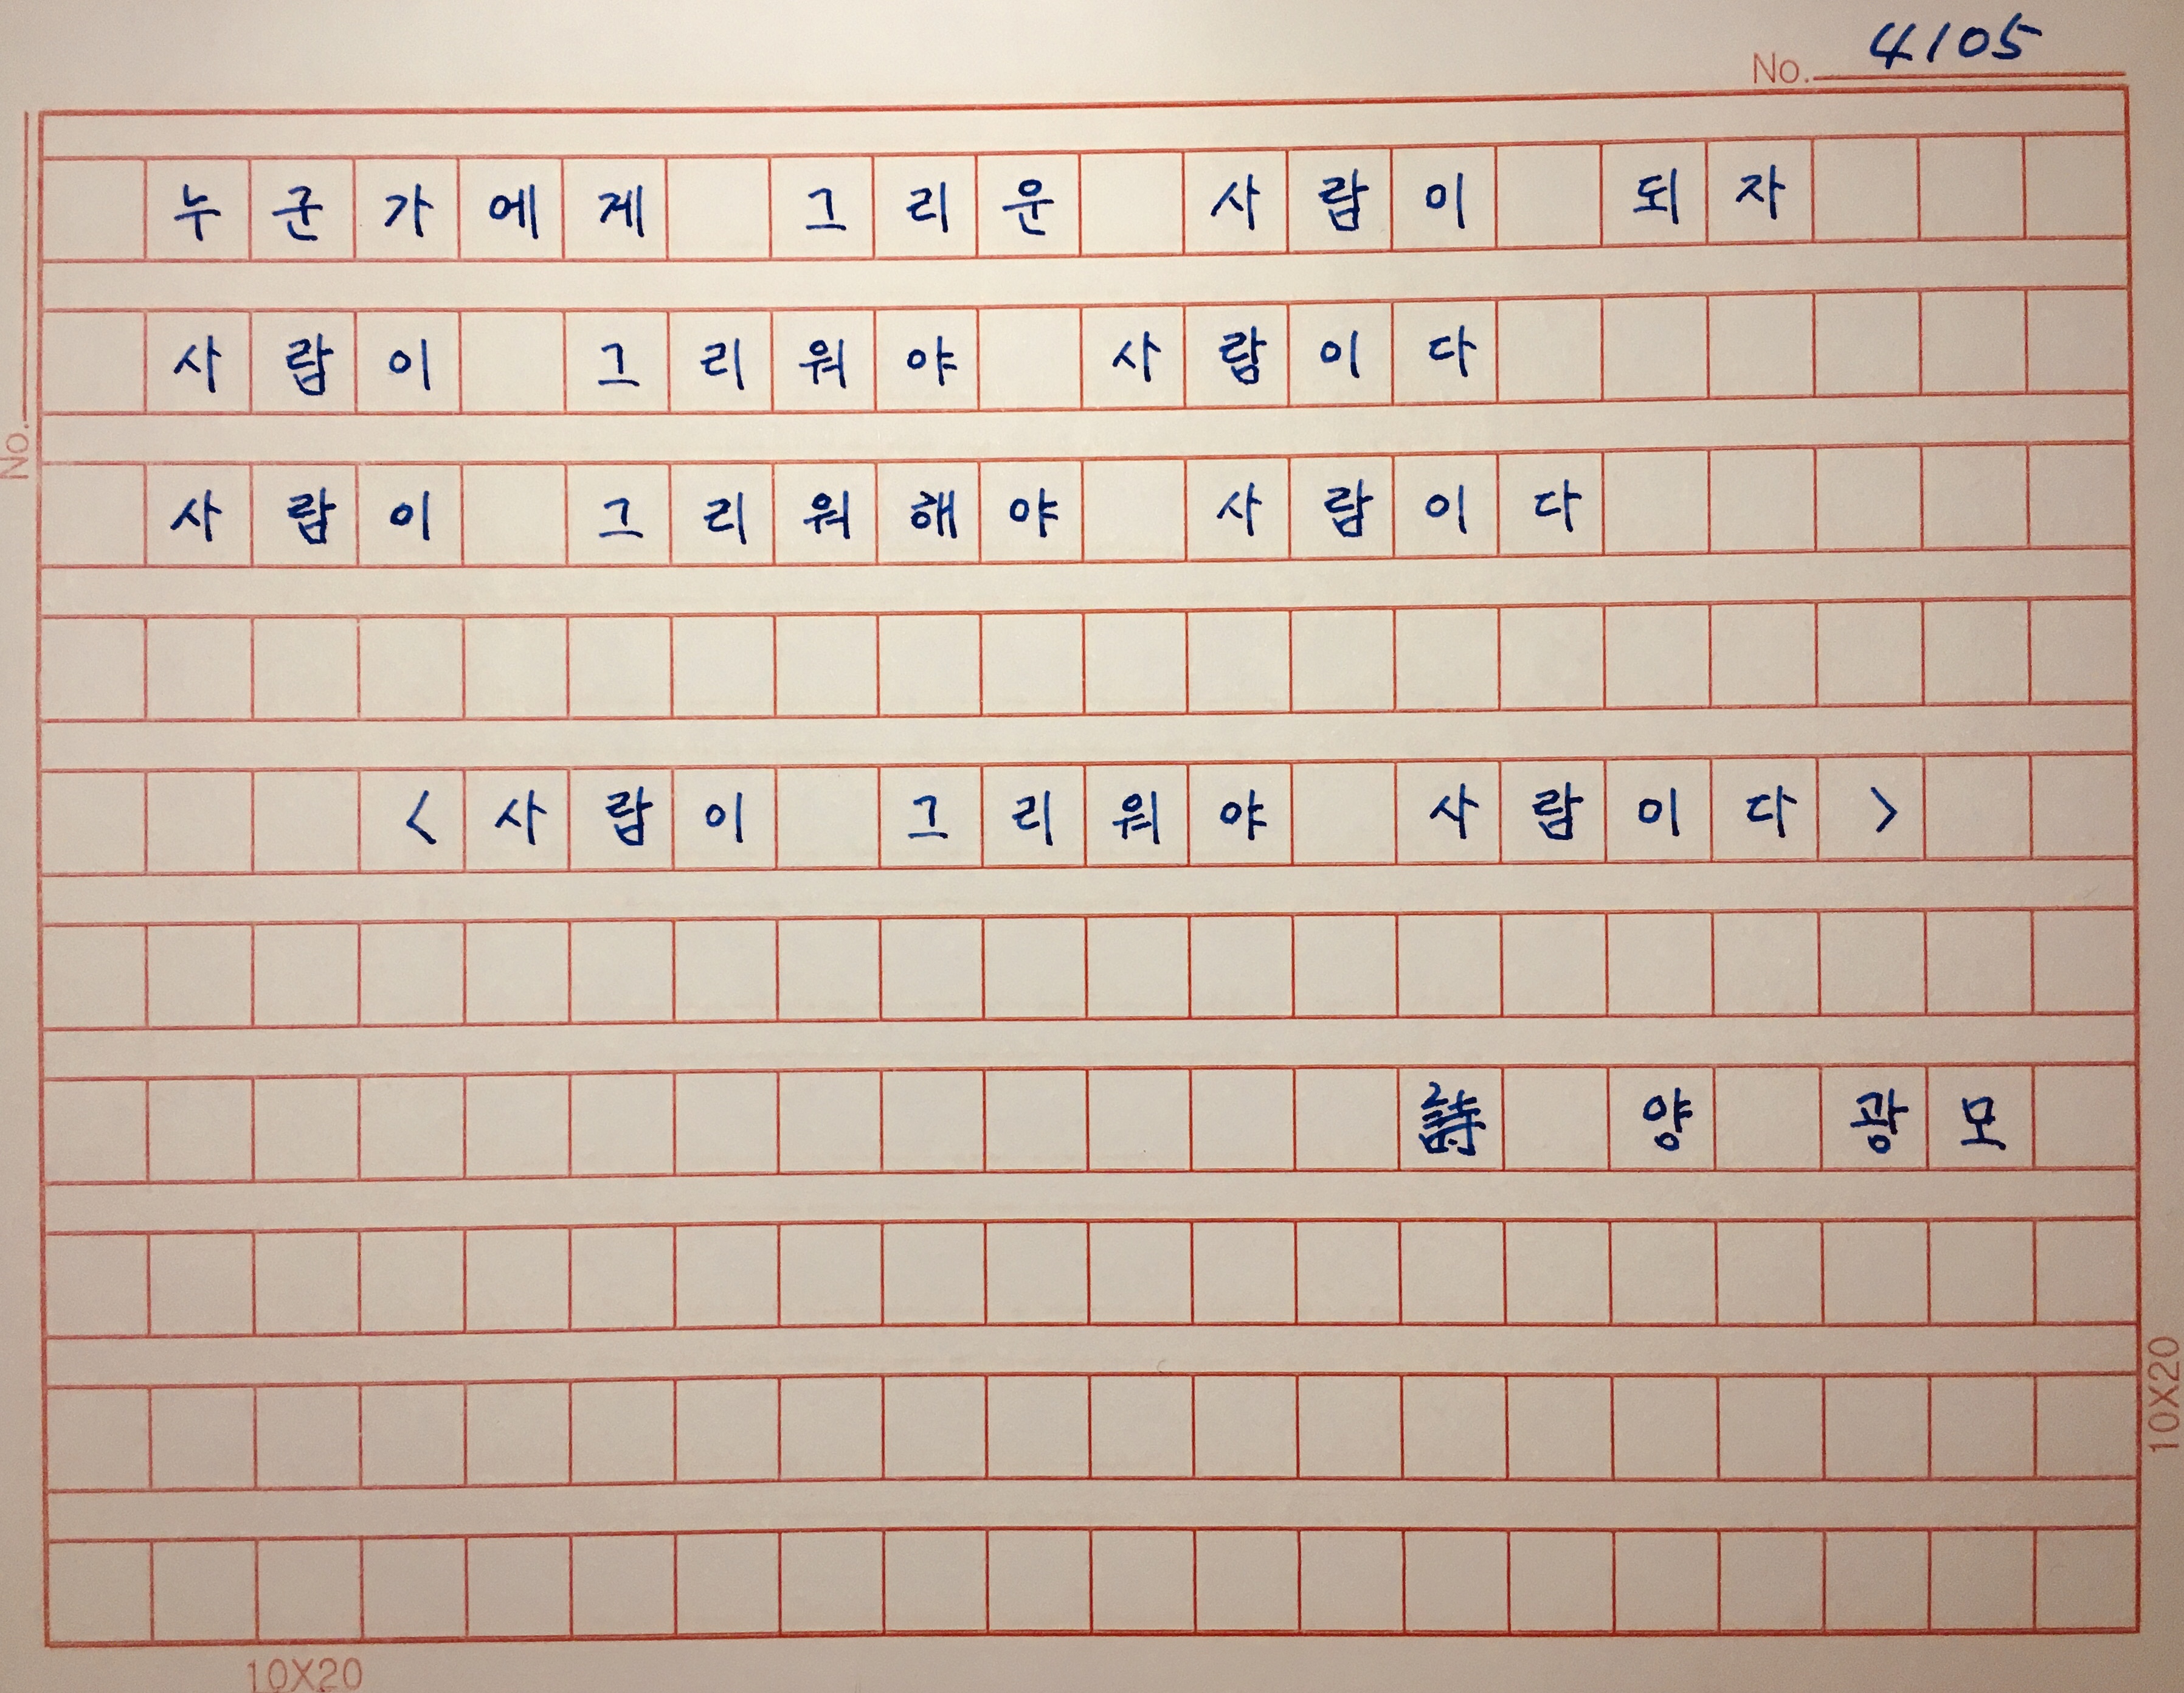 No. 4105
누군가에게 그리운 사람이 되자
사람이 그리워야 사람이다
사람이 그리워해야 사람이다
No.
<사람이 그리워야 사람이다>
詩 양 광모
10X20
10X20